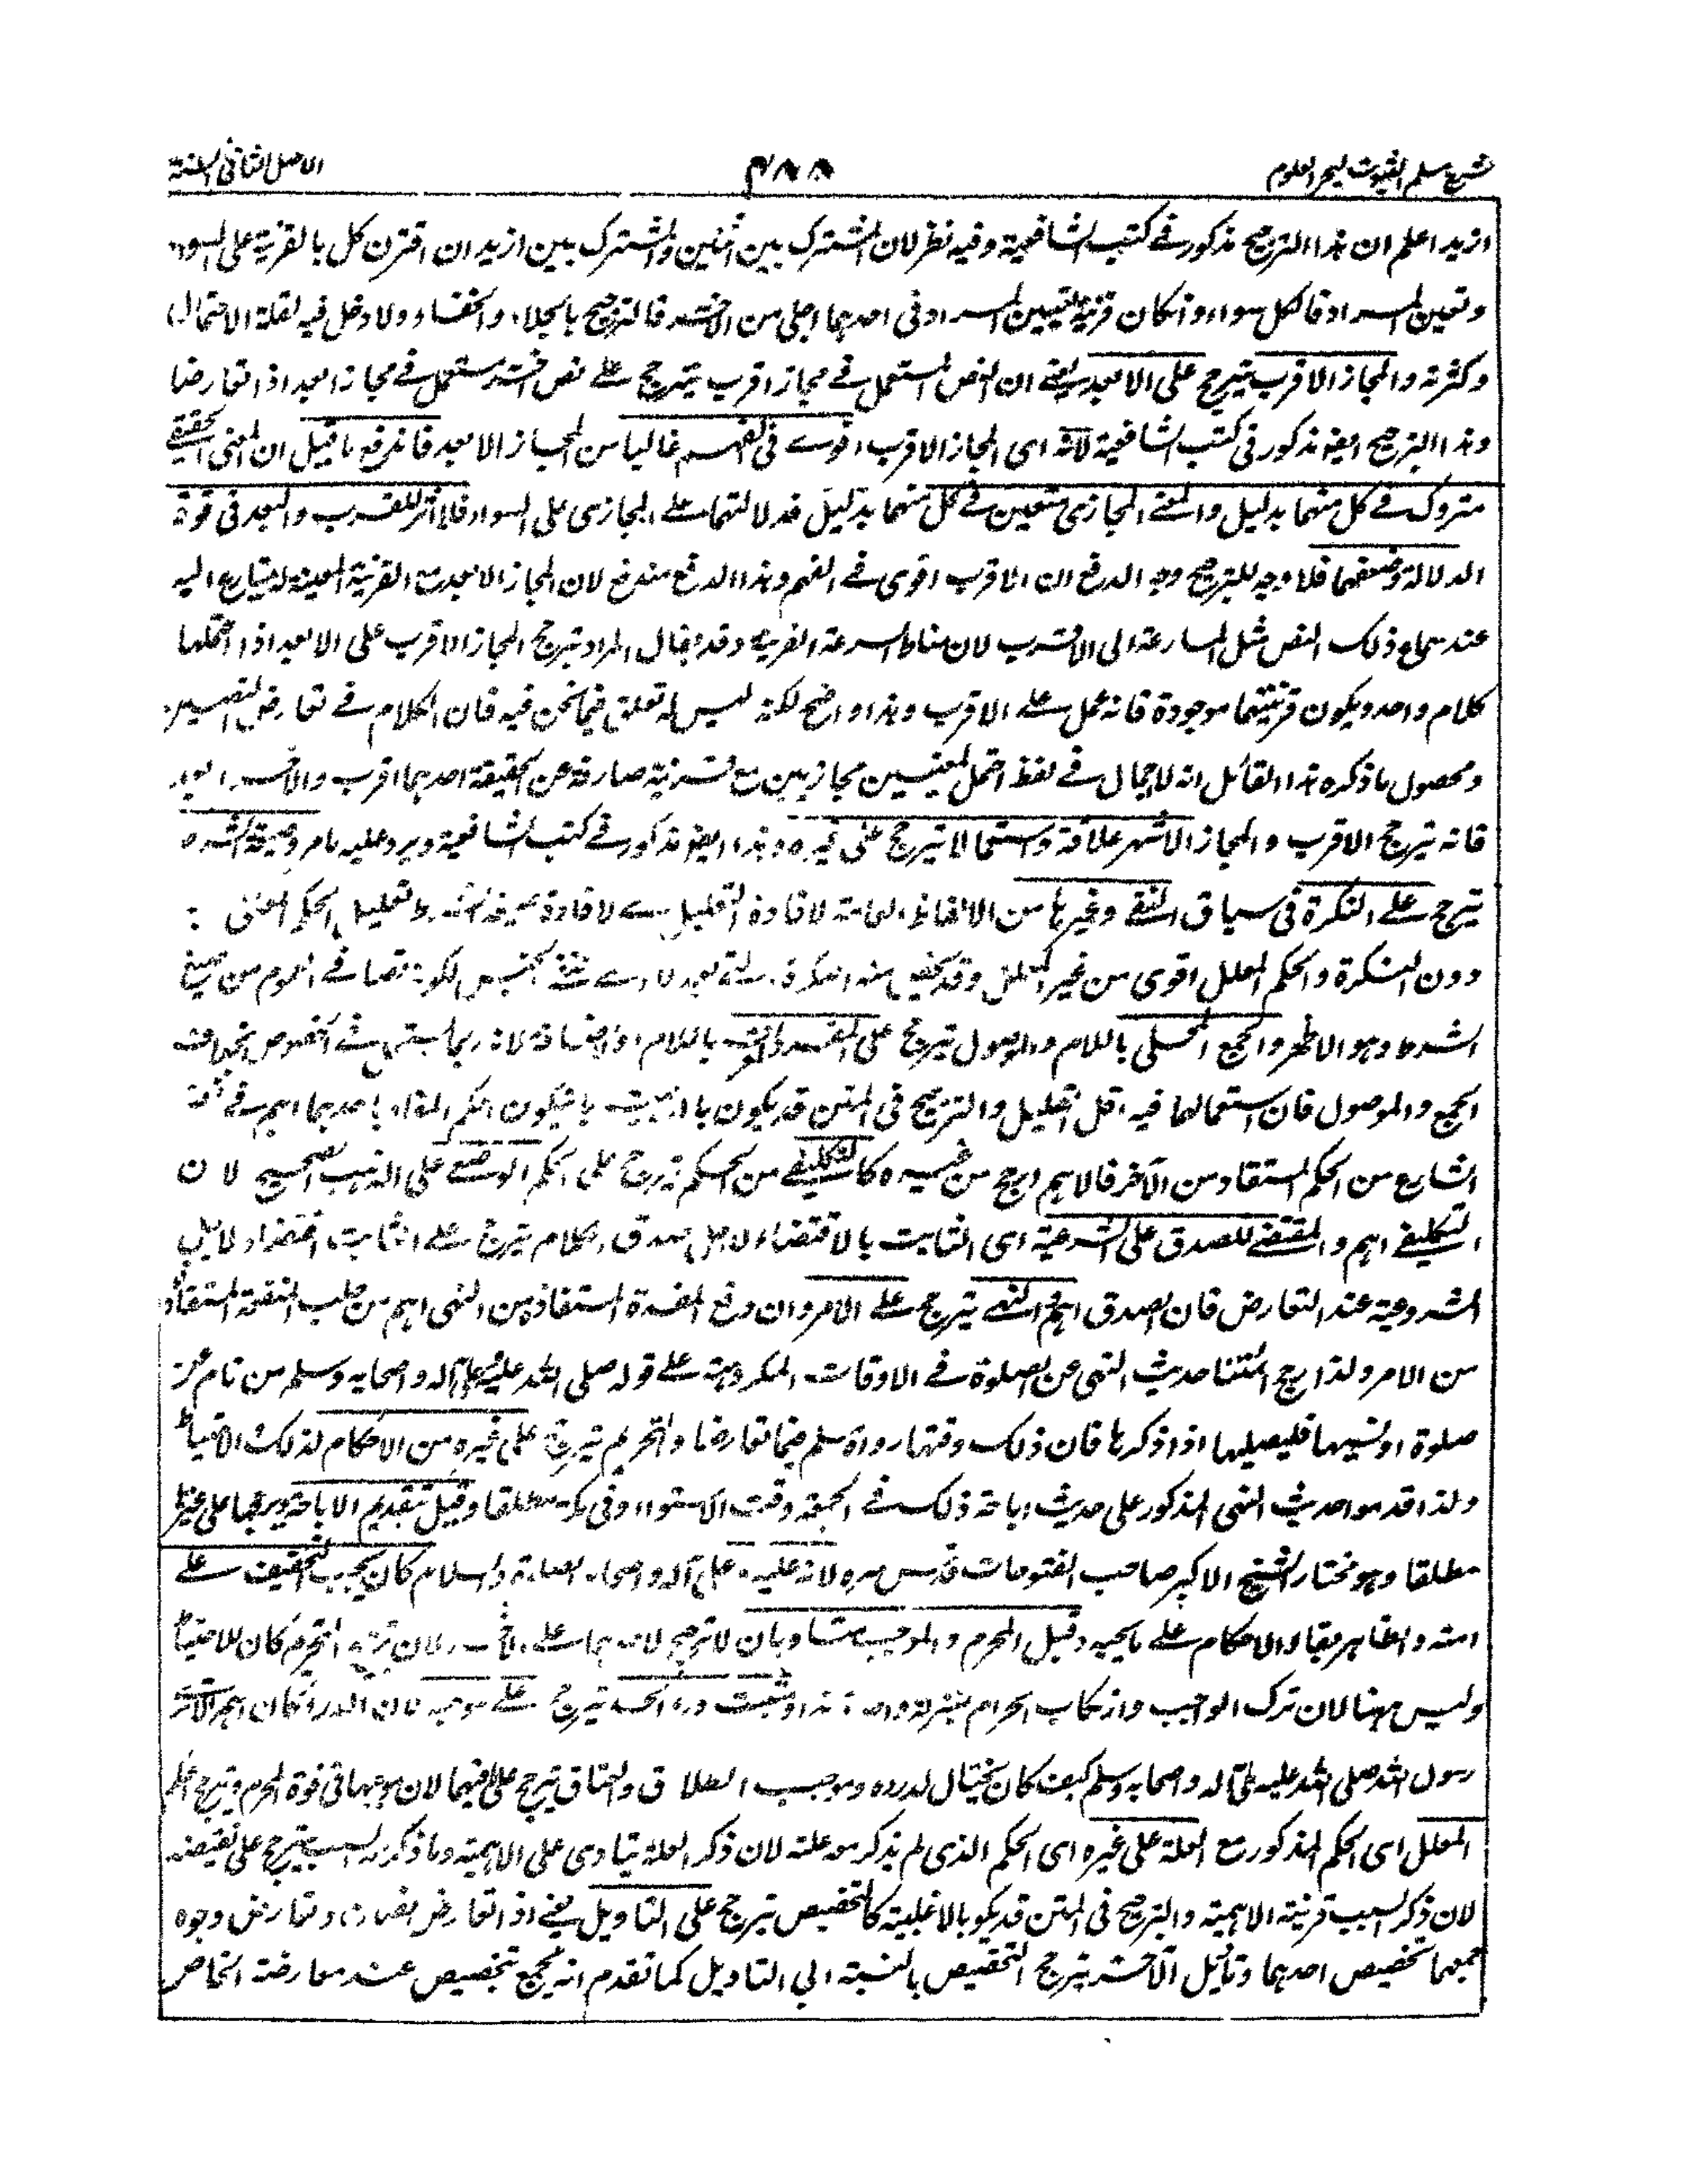 شرح مسلم الثبوت لبحر العلوم ۴۸۸ الاصل الثانی السنة
ازید اعلم ان ہذا الترجیح مذکور فے کتب الشافعیة وفیه نظر لان المشترک بین اثنین والمشترک بین ازید ان اقترن کل بالقرینة علی السواء
وتعین المراد فالکل سواء وان کان قرینة تعیین المراد فی احدہما اجلی من الآخر فالترجیح بالجلاء والخفاء ولا دخل فیه لقلة الاحتمال
وکثرته والمجاز الاقرب یترجح علی الابعد یعنے ان النص المستعمل فے مجاز اقرب یترجح علے نص آخر مستعمل فے مجاز ابعد اذا تعارضا
وہذا الترجیح ایضا مذکور فی کتب الشافعیة لانه ای المجاز الاقرب اقوے فی الفہم غالبا من المجاز الابعد فاندفع ما قیل ان المعنی الحقیقے
متروک فے کل منہما بدلیل والمعنے المجازی متعین فے کل منہما بدلیل فدلالتہما علے المجازی علی السواء فلا اثر للقرب والبعد فی قوة
الدلالة وضعفہا فلا وجه للترجیح وجه الدفع ان الاقرب اقوی فے الفہم وہذا الدفع مندفع لان المجاز الابعد مع القرینة المعینة یتسارع الیه
عند سماع ذلک النص مثل المسارعة الی الاقرب لان مناط السرعة القرینة وقد یقال المراد ترجح المجاز الاقرب علی الابعد اذا احتملہا
کلام واحد ویکون قرینتہما موجودة فانه یحمل علے الاقرب وہذا واضح لکنه لیس له تعلق فیما نحن فیه فان الکلام فے تعارض النصین
ومحصول ما ذکره ہذا القائل انه لا اجمال فے لفظ احتمل لمعنیین مجازیین مع قرینة صارفة عن الحقیقة احدہما اقرب والآخر ابعد
فانه یترجح الاقرب والمجاز الاشہر علاقة واستعمالا یترجح علی غیره وہذا ایضا مذکور فے کتب الشافعیة ویرد علیه ما مر وصیغة الشرط
یترجح علے النکرة فی سیاق النفے وغیرہا من الالفاظ العامة لافادة التعلیل لافادة صیغة الشرط تعلیل الحکم
دون النکرة والحکم المعلل اقوی من غیر المعلل وقد
الشرط وہو الاظہر والجمع المحلی باللام والموصول یترجح علی المفرد المعرف باللام او الاضافة لانه ربما یستعمل فے الخصوص بخلاف
الجمع والموصول فان استعمالہا فیه اقل القلیل والترجیح فی المتن قد یکون بالاہمیة بان یکون الحکم المفاد باحدہما اہم فے
الشارع من الحکم المستفاد من الآخر فالاہم ارجح من غیره کالتکلیفے من الحکم یترجح علی الحکم الوضعے علی المذہب الصحیح لان
التکلیفے اہم والمقتضے للصدق علی الشرعیة ای الثابت بالاقتضاء لاجل صدق الکلام یترجح علے الثابت اقتضاء لاجل
المشروعیة عند التعارض فان الصدق اہم والنہی یترجح علے الامر وان دفع المفسدة المستفاد من النہی اہم من جلب المنفعة المستفاد
من الامر ولذا رجح ائمتنا حدیث النہی عن الصلوة فے الاوقات المکروہة علے قوله صلی الله علیه وعلی آله واصحابه وسلم من نام عن
صلوة او نسیہا فلیصلیہا اذا ذکرہا فان ذلک وقتہا رواه مسلم فیما تعارضا والتحریم یترجح علی غیره من الاحکام لذلک الاحتیاط
ولذا قدموا حدیث النہی المذکور علی حدیث اباحة ذلک فے الجمعة وقت الاستواء وفی مکة مطلقا وقیل بتقدیم الاباحة ویرجحہا علی غیرہا
مطلقا وہو مختار الشیخ الاکبر صاحب الفتوحات قدس سره لانه علیه وعلی آله واصحابه الصلاة والسلام کان یحب التخفیف علے
امته والظاہر بقاء الاحکام علے ما یحبه وقیل المحرم والموجب متساویان لا ترجیح لاحدہما علے لان ترجیح المحرم کان للاحتیاط
ولیس ہہنا لان ترک الواجب وارتکاب الحرام بمنزلة واحدة ہذا ومثبت درء الحد یترجح علے موجبه لان الدرء کان اہم
رسول الله صلی الله علیه وعلی آله واصحابه وسلم کیف کان یحتال لدرءه وموجب الطلاق والعتاق یترجح علی نافیہما لان موجبہا فی قوة المحرم ویترجح الحکم
المعلل ای الحکم المذکور مع العلة علی غیره ای الحکم الذی لم یذکر معه علته لان ذکر العلة ینادی علی الاہمیة وما ذکر مع السبب یترجح علی نقیضه
لان ذکر السبب قرینة الاہمیة والترجیح فی المتن قد یکون بالاغلبیة کالتخصیص یترجح علی التاویل یعنے اذا تعارض نصان وتعارض وجوه
جمعہما تخصیص احدہما وتاویل الآخر یترجح التخصیص بالنسبة الی التاویل کما تقدم انه یجمع بتخصیص عند معارضة الخاص